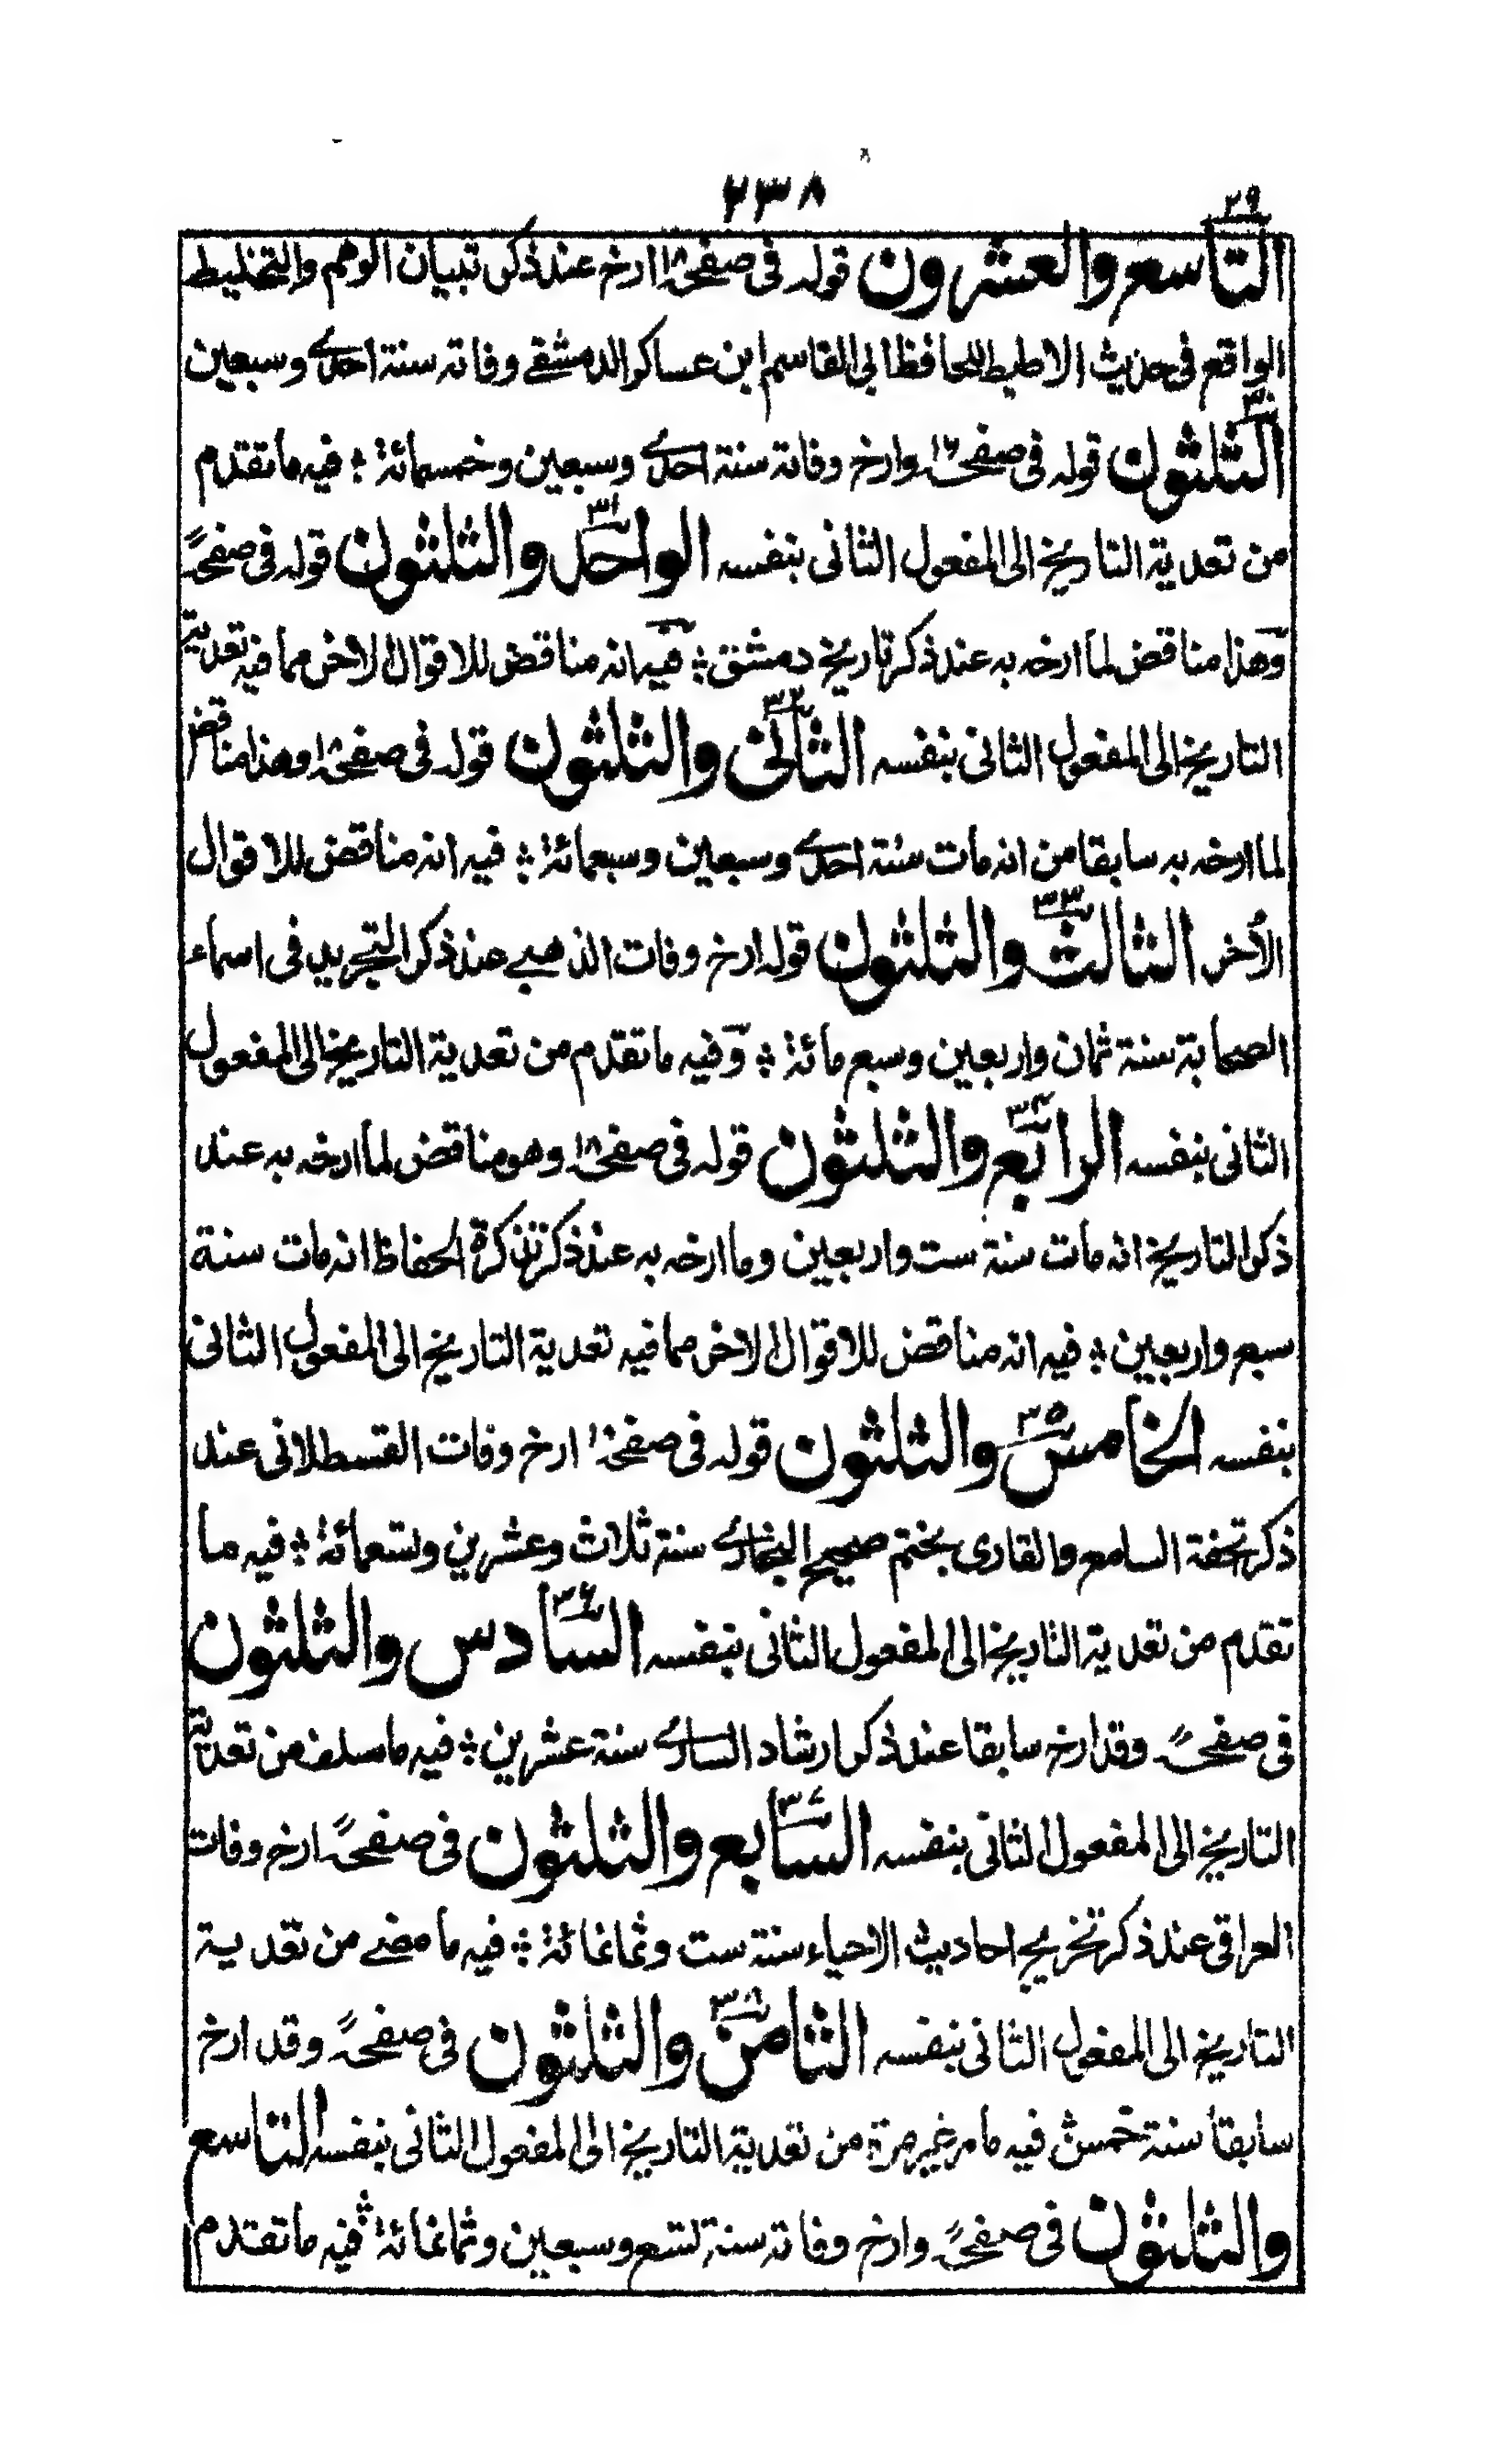 ٢٣٨
٢٩
التاسع والعشرون قوله في صفحة ١٨ ارخ عند ذكر تبيان الوهم والتخليط
الواقع في حديث الاطيط للحافظ ابي القاسم ابن عساكر الدمشقي وفاته سنة احدى وسبعين
٣٠
الثلثون قوله في صفحة وارخ وفاته سنة احدى وسبعين وخمسمائة ؞ فيه ما تقدم
من تعدية التاريخ الى المفعول الثاني بنفسه الواحد والثلثون ٣١ قوله في صفحة
وهذا مناقض لما ارخه به عند ذكر تاريخ دمشق ؞ فيه انه مناقض للاقوال الاخر مما فيه تعدية
التاريخ الى المفعول الثاني بنفسه الثاني والثلثون ٣٢ قوله في صفحة ١٨ وهذا مناقض
لما ارخه به سابقا من انه مات سنة احدى وسبعين وسبعمائة ؞ فيه انه مناقض للاقوال
الأخر الثالث والثلثون ٣٣ قوله ارخ وفات الذهبي عند ذكر التجريد في اسماء
الصحابة سنة ثمان واربعين وسبع مائة ؞ وفيه ما تقدم من تعدية التاريخ الى المفعول
الثاني بنفسه الرابع والثلثون ٣٤ قوله في صفحة ١٨ وهو مناقض لما ارخه به عند
ذكر التاريخ انه مات سنة ست واربعين وما ارخه به عند ذكر تذكرة الحفاظ انه مات سنة
سبع واربعين ؞ فيه انه مناقض للاقوال الاخر مما فيه تعدية التاريخ الى المفعول الثاني
بنفسه الخامس والثلثون ٣٥ قوله في صفحة ارخ وفات القسطلاني عند
ذكر تحفة السامع والقاري بختم صحيح البخاري سنة ثلاث وعشرين وتسعمائة ؞ فيه ما
تقدم من تعدية التاريخ الى المفعول الثاني بنفسه السادس والثلثون ٣٦
في صفحة وقد ارخ سابقا عند ذكر ارشاد الساري سنة عشرين ؞ فيه ما سلف من تعدية
التاريخ الى المفعول الثاني بنفسه السابع والثلثون ٣٧ في صفحة ارخ وفات
العراقي عند ذكر تخريج احاديث الاحياء سنة ست وثمانمائة ؞ فيه ما مضى من تعدية
التاريخ الى المفعول الثاني بنفسه الثامن والثلثون ٣٨ في صفحة وقد ارخ
سابقا سنة خمس فيه ما مر غير مرة من تعدية التاريخ الى المفعول الثاني بنفسه التاسع
والثلثون في صفحة وارخ وفاته سنة تسع وسبعين وثمانمائة ؞ فيه ما تقدم